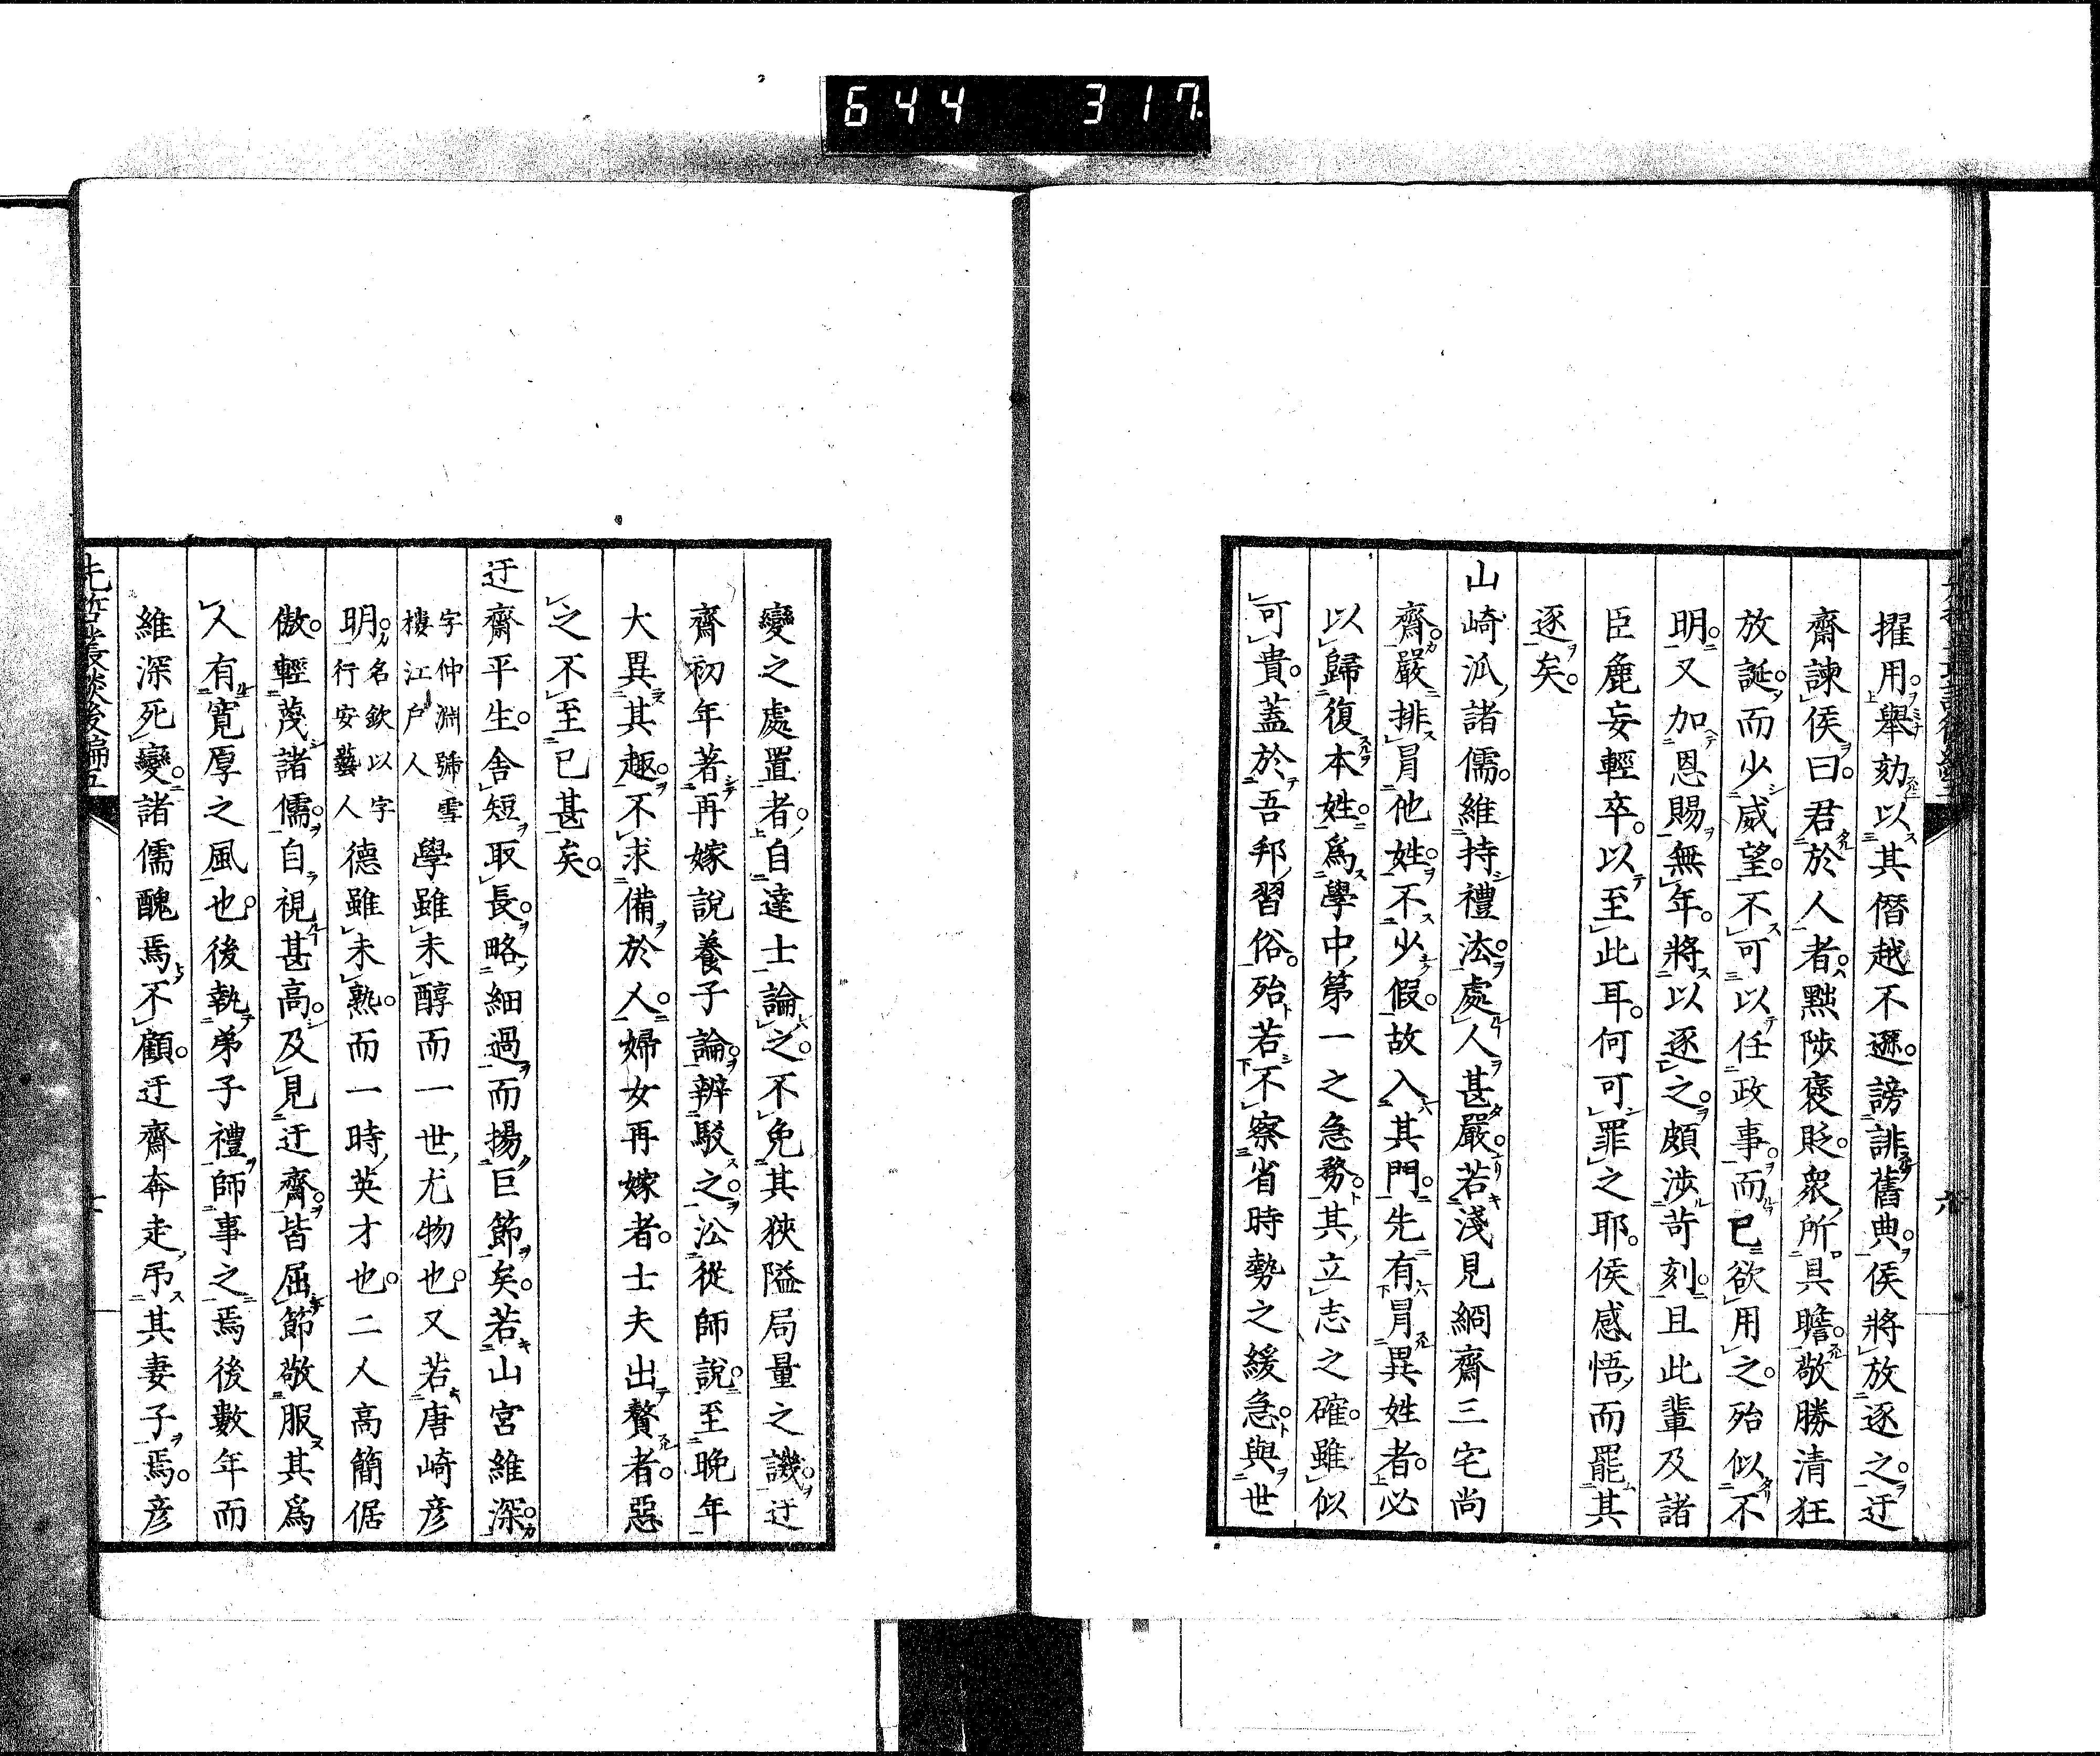 644 317
擢用。舉劾以其僭越不遜。謗誹舊典。侯將放逐之。迂
齋諫侯曰。君於人者。黜陟褒貶。衆所具瞻。敬勝清狂
放誕。而少威望。不可以任政事。而已欲用之。殆似不
明。又加恩賜。無年。將以逐之。頗涉苛刻。且此輩及諸
臣麁妄輕卒。以至此耳。何可罪之耶。侯感悟而罷其
逐矣。
山崎派諸儒。維持禮法。處人甚嚴。若淺見絅齋三宅尚
齋。嚴排冒他姓。不少假。故入其門。先有冒異姓者。必
以歸復本姓。爲學中第一之急務。其立志之確。雖似
可貴。蓋於吾邦習俗。殆若不察省時勢之緩急。與世
變之處置者。自達士論之。不免其狹隘局量之譏。迂
齋初年著再嫁說養子論。辨駁之。訟從師說。至晚年
大異其趣。不求備於人。婦女再嫁者。士夫出贅者。惡
之不至已甚矣。
迂齋平生。舍短取長。略細過而揚巨節矣。若山宮維深。
字仲淵號雪
樓江戶人
學雖未醇而一世尤物也。又若唐崎彦
明。
名欽以字
行安藝人
德雖未熟。而一時英才也。二人高簡倨
傲。輕蔑諸儒。自視甚高。及見迂齋。皆屈節敬服其爲
人有寬厚之風也。後執弟子禮。師事之焉後數年而
維深死變。諸儒醜焉不顧。迂齋奔走。吊其妻子焉。彦
先哲叢談後編五